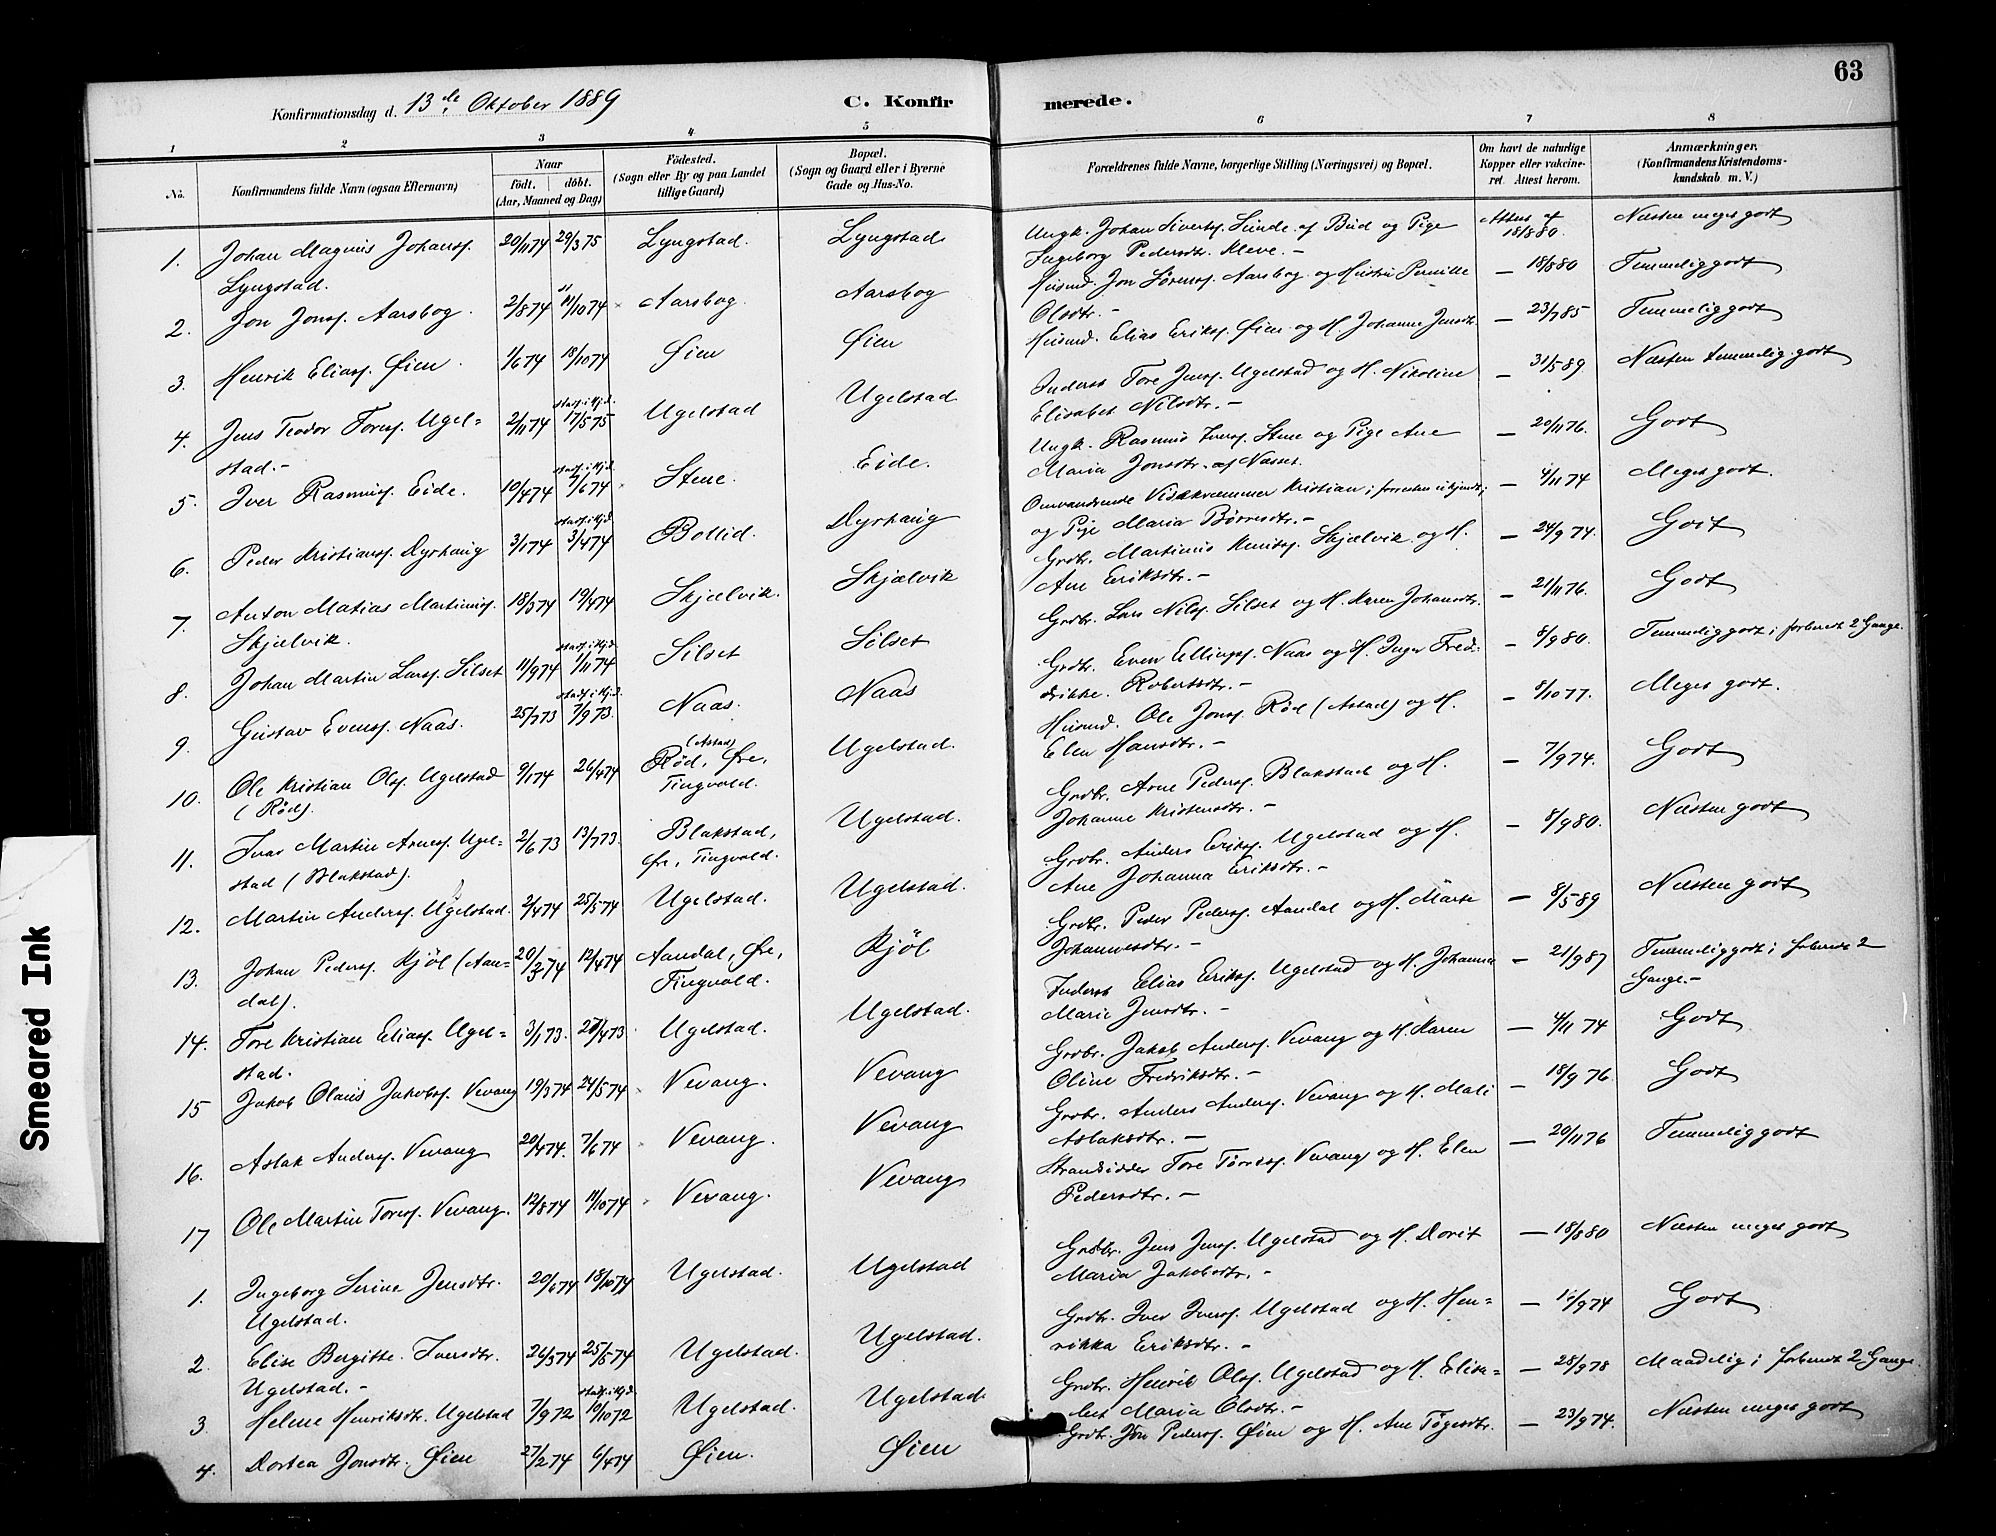 63
Konfirmationsdag d. 13de Oktober 1889
C. Konfir
merede.
1 2 3 4 5 6 7 8
No.
Konfirmandens fulde Navn (ogsaa Efternavn)
Naar
født. døbt.
(Aar, Maaned og Dag)
Fødested.
(Sogn eller By og paa Landet
tillige Gaard)
Bopæl.
(Sogn og Gaard eller i Byerne
Gade og Hus-No.
Forældrenes fulde Navne, borgerlige Stilling (Næringsvei) og Bopæl.
Om havt de naturlige
Kopper eller vakcine-
ret. Attest herom.
Anmærkninger.
(Konfirmandens Kristendoms-
kundskab m. V.)
1. Johan Magnus Johans. 20/11 74 29/3 75 Lyngstad. Lyngstad Ungk. Johan Siverts. Sunde af Bud og Pige Attest af 18/8 80. Næsten meget godt
Lyngstad. Ingeborg Pedersdtr. Kleve.-
2. Jon Jons. Aarsbog. 2/8 74 11/10 74 Aarsbog. Aarsbog Husmd. Jon Sørens. Aarsbog og Hustru Pernille — 18/8 80 Temmelig godt
Olsdtr.-
3. Henrik Elias. Øien. 1/6 74 18/10 74 Øien Øien Husmd. Elias Eriks. Øien og H. Johanne Jensdtr. — 23/7 85 Temmelig godt
4. Jens Teodor Tores. Ugel= 2/11 74 stadf. i Kjd. 17/5 75 Ugelstad Ugelstad Inderst Tore Jens. Ugelstad og H. Nikoline — 31/5 89 Næsten temmelig godt
stad.- Elisabet Nilsdtr.-
5. Iver Rasmus. Eide. 10/4 74 stadf. i Kjd. 7/6 74 Stene. Eide. Ungk. Rasmus Ivers. Stene og Pige Ane — 20/11 76. Godt
Maria Jonsdtr. af Nasset.
6. Peder Kristians. Dyrhaug 3/1 74 stadf. i Kjd. 3/4 74 Bollid. Dyrhaug Omvandrende Kristian, forresten ukjendt; — 4/11 74 Meget godt.
og Pige Maria Børresdtr.-
7. Anton Matias Martinus. 18/3 74 19/4 74 Skjælvik. Skjælvik Grdbr. Martinus Knuts. Skjælvik og H. — 24/9 74. Godt
Skjælvik. Ane Eriksdtr.-
8. Johan Martin Lars. Silset 11/9 74 stadf. i Kjd. 1/11 74 Silset Silset Grdbr. Lars Nils. Silset og H. Karen Johansdtr. — 21/11 76. Godt
9. Gustav Evens. Naas. 25/7 73 stadf. i Kjd. 7/9 73. Naas. Naas Grdbr. Even Ellings. Naas og H. Inger Fred= — 8/9 80. Temmelig godt; forberedt 2 Gange.
drikke. Robertsdtr.-
10. Ole Kristian Ols. Ugelstad 9/1 74 26/4 74 (Astad) Rød, Øre, Ugelstad. Husmd. Ole Jons. Rød (Astad) og H. — 8/10 77. Meget godt.
(Rød). Tingvold. Elen Hansdtr.-
11. Ivar Martin Arnes. Ugel= 2/6 73 13/7 73. Blakstad, Ugelstad. Grdbr. Arne Peders. Blakstad og H. — 7/9 74. Godt
stad (Blakstad). Øre, Tingvold. Johanne Kristensdtr.-
12. Martin Anders. Ugelstad. 2/4 74 25/5 74 Ugelstad. Ugelstad. Grdbr. Anders Eriks. Ugelstad og H. — 8/9 80. Næsten godt
Ane Johanna Eriksdtr.-
13. Johan Peders. Kjøl (Aan= 20/2 74 12/4 74 Aandal, Øre, Kjøl Grdbr. Peder Peders. Aandal og H. Marte — 8/5 89 Næsten godt
dal). Tingvold. Johannesdtr.-
14. Tore Kristian Elias. Ugel= 3/1 73. 27/4 73 Ugelstad. Ugelstad. Inderst Elias Eriks. Ugelstad og H. Johanna — 21/9 87 Temmelig godt; forberedt 2
stad. Marie Jensdtr.- Gange.-
15 Jakob Olaus Jakobs. Vevang 19/3 74 24/5 74 Vevang. Vevang Grdbr. Jakob Anders. Vevang og H. Karen — 4/11 74 Godt
Oline Fredriksdtr.-
16. Aslak Anders. Vevang 20/4 74. 7/6 74 Vevang. Vevang Grdbr. Anders Anders. Vevang og H. Mali — 18/9 76. Godt
Aslaksdtr.-
17 Ole Martin Tores. Vevang. 12/8 74 11/10 74 Vevang. Vevang Strandsidder Tore Vevang og H. Elen — 20/11 76 Temmelig godt
Pedersdtr.-
1. Ingeborg Serine Jensdtr. 20/6 74 18/10 74 Ugelstad. Ugelstad Grdbr. Jens Jens. Ugelstad og H. Dorit — 18/8 80 Næsten meget godt
Ugelstad. Maria Jakobsdtr.-
2. Elise Bergitte Iversdtr. 26/3 74 25/5 74 Ugelstad. Ugelstad. Grdbr. Iver Ivers. Ugelstad og H. Hen= — /9 74 Godt
Ugelstad.- rikka Eriksdtr.-
3 Helene Henriksdtr. Ugelstad 7/9 72 stadf. i Kjd. 10/10 72 Ugelstad. Ugelstad. Grdbr. Henrik Ols. Ugelstad og H. Elisa= — 28/9 78 Maadelig; forberedt 2 Gange.
bet Maria Olsdtr.-
4. Dortea Jonsdtr. Øien 27/2 74 6/4 74 Øien. Øien Grdbr. Jon Peders. Øien og H. Ane Tøgesdtr. — 23/9 74. Næsten meget godt
Smeared Ink